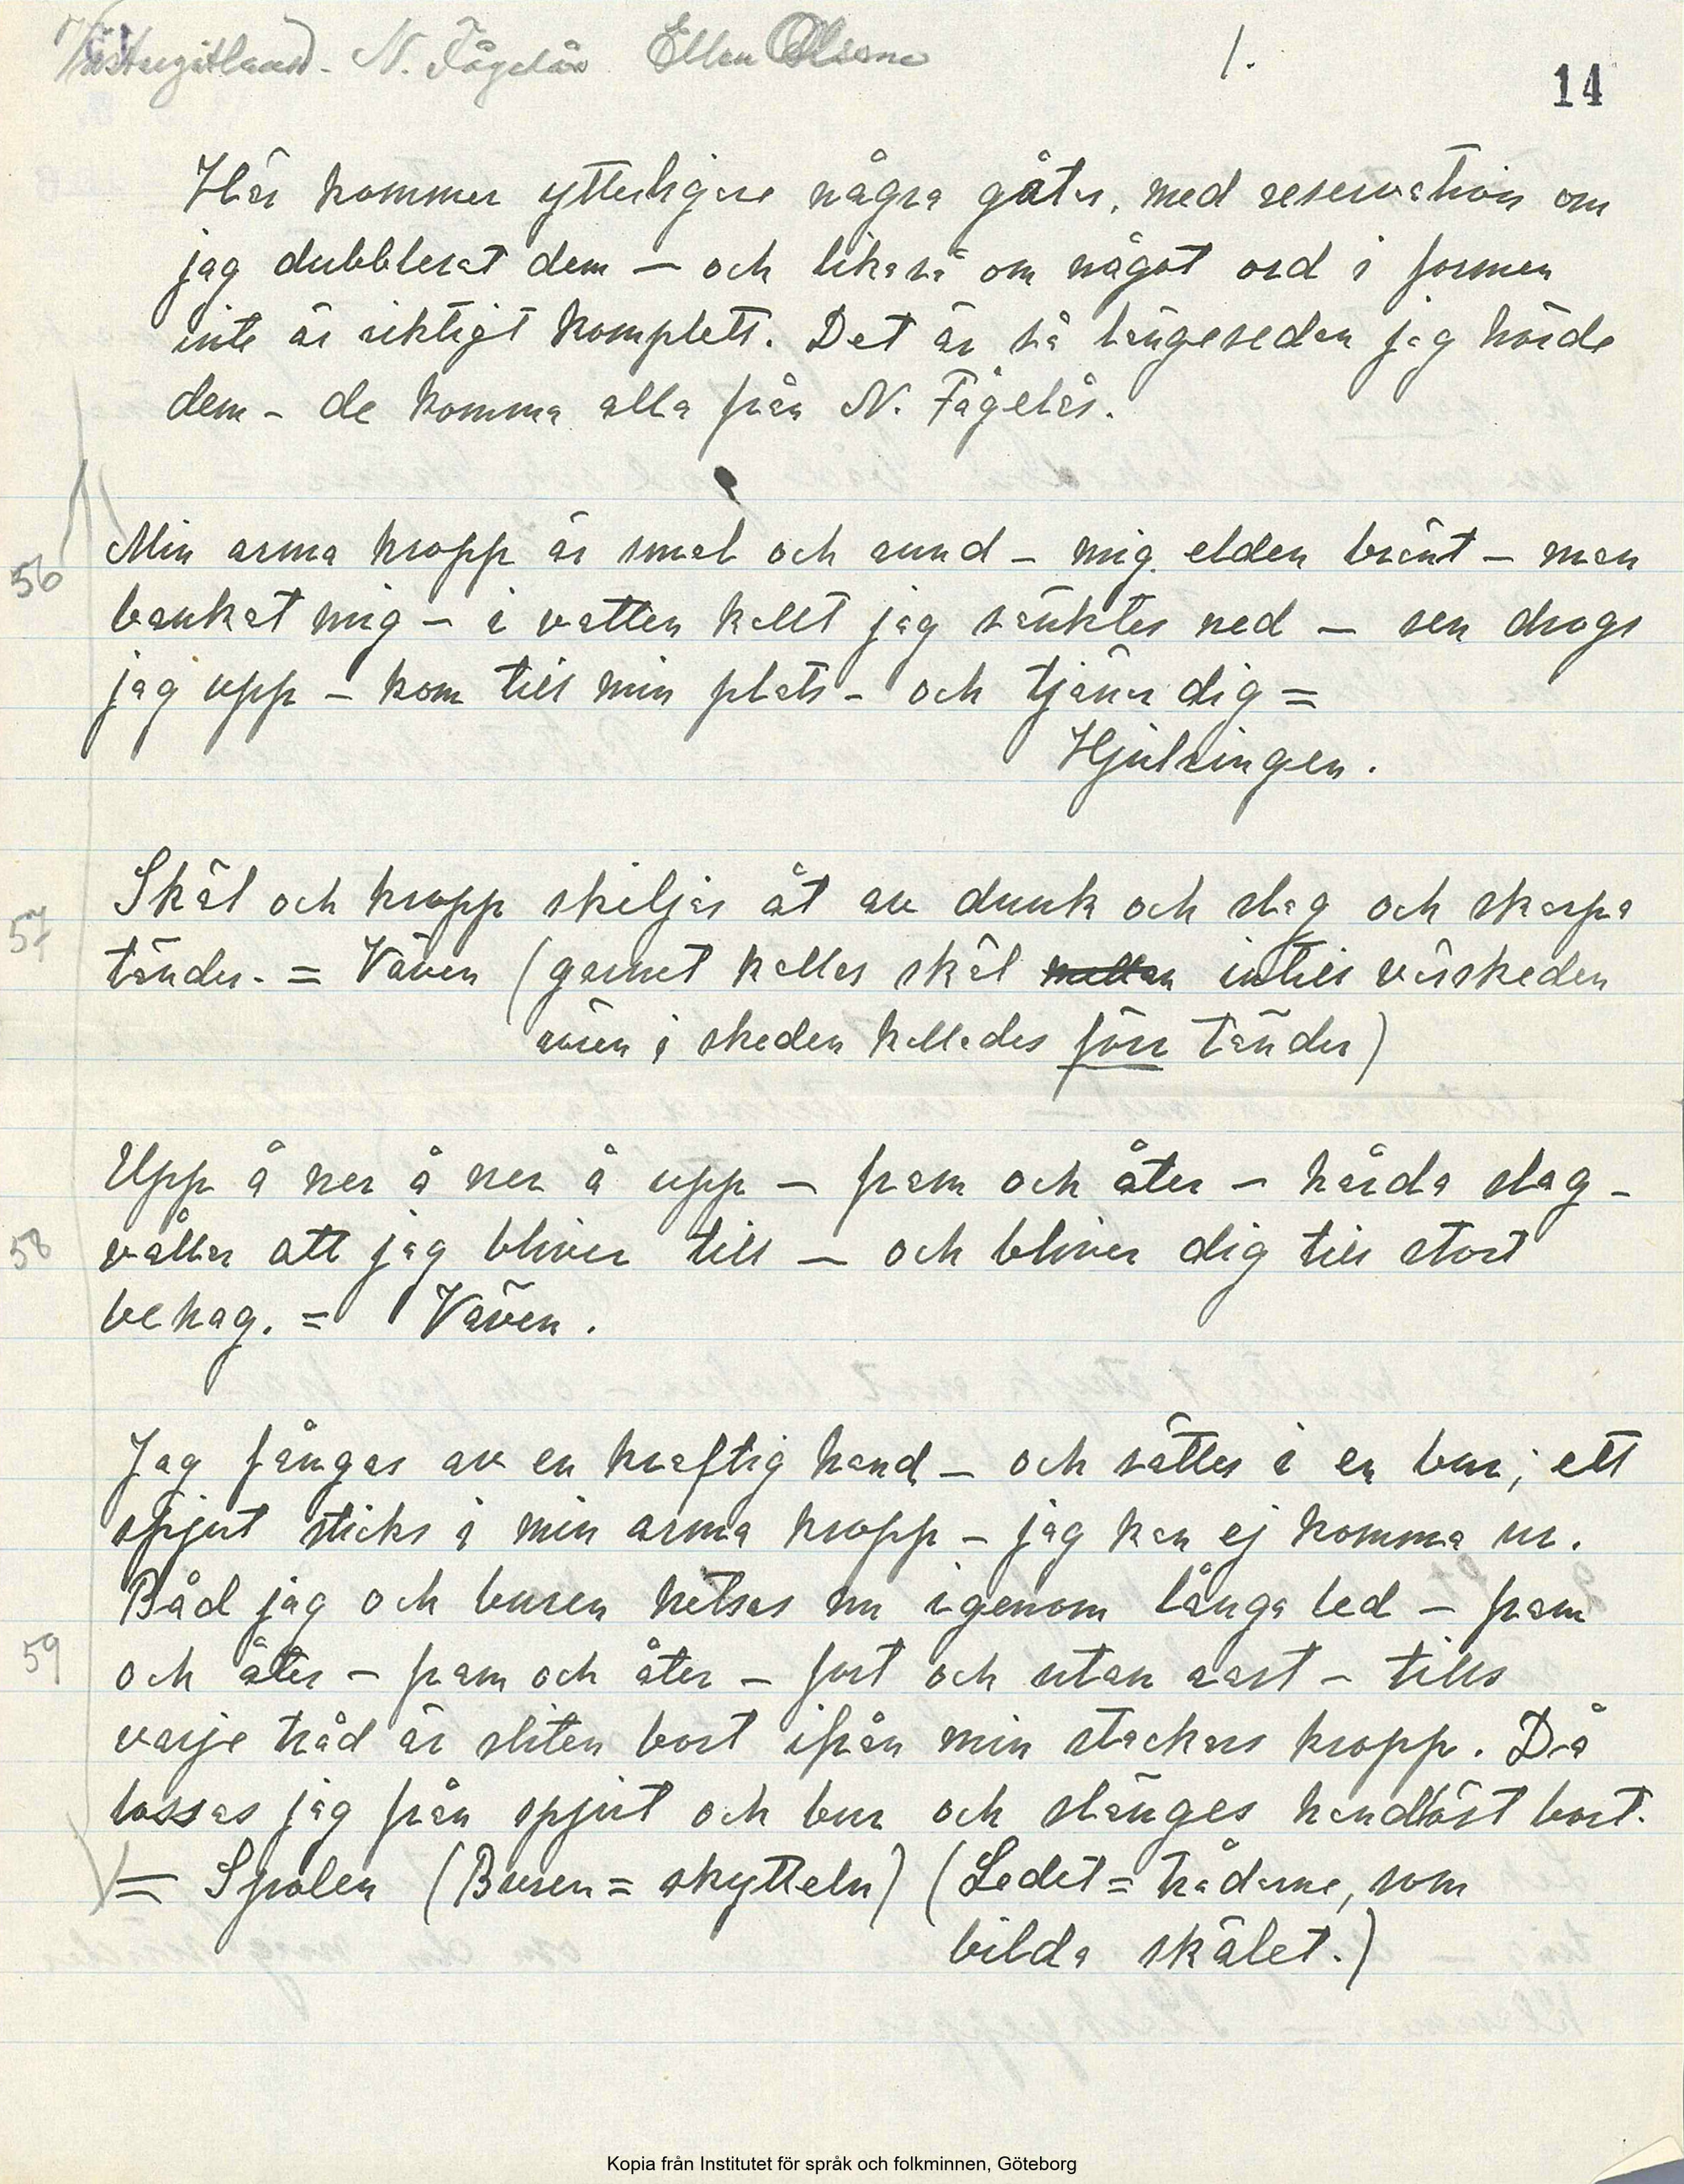 Västergötland. N. Fågelås Ellen Olsson 1. 14
Här kommer ytterligare några gåtor, med reservation om
jag dubblerat dem – och likaså om något ord i formen
inte är riktigt komplett. Det är så längesedan jag hörde
dem – de komma alla från N. Fågelås.
56 Min arma kropp är smal och rund – mig elden bränt – man
bankat mig – i vatten kallt jag sänktes ned – sen drogs
jag upp – kom till min plats – och tjänar dig =
Hjulringen.
57 Skäl och kropp skiljas åt av dunk och slag och skarpa
tänder. = Väven (garnet kallas skäl intill vävskeden
rören i skeden kallades förr tänder)
Upp å ner å ner å upp – fram och åter – hårda slag –
58 vållar att jag bliver till – och bliver dig till stort
behag. = Väven.
Jag fångas av en kraftig hand – och sättes i en bur; ett
spjut sticks i min arma kropp – jag kan ej komma ur.
Båd jag och buren hetsas nu igenom långa led – fram
59 och åter – fram och åter – fort och utan rast – tills
varje tråd är sliten bort ifrån min stackars kropp. Då
lossas jag från spjut och bur och slänges handlöst bort.
= Spolen (Buren = skytteln) (Ledet = trådarne, som
bilda skälet.)
Kopia från Institutet för språk och folkminnen, Göteborg